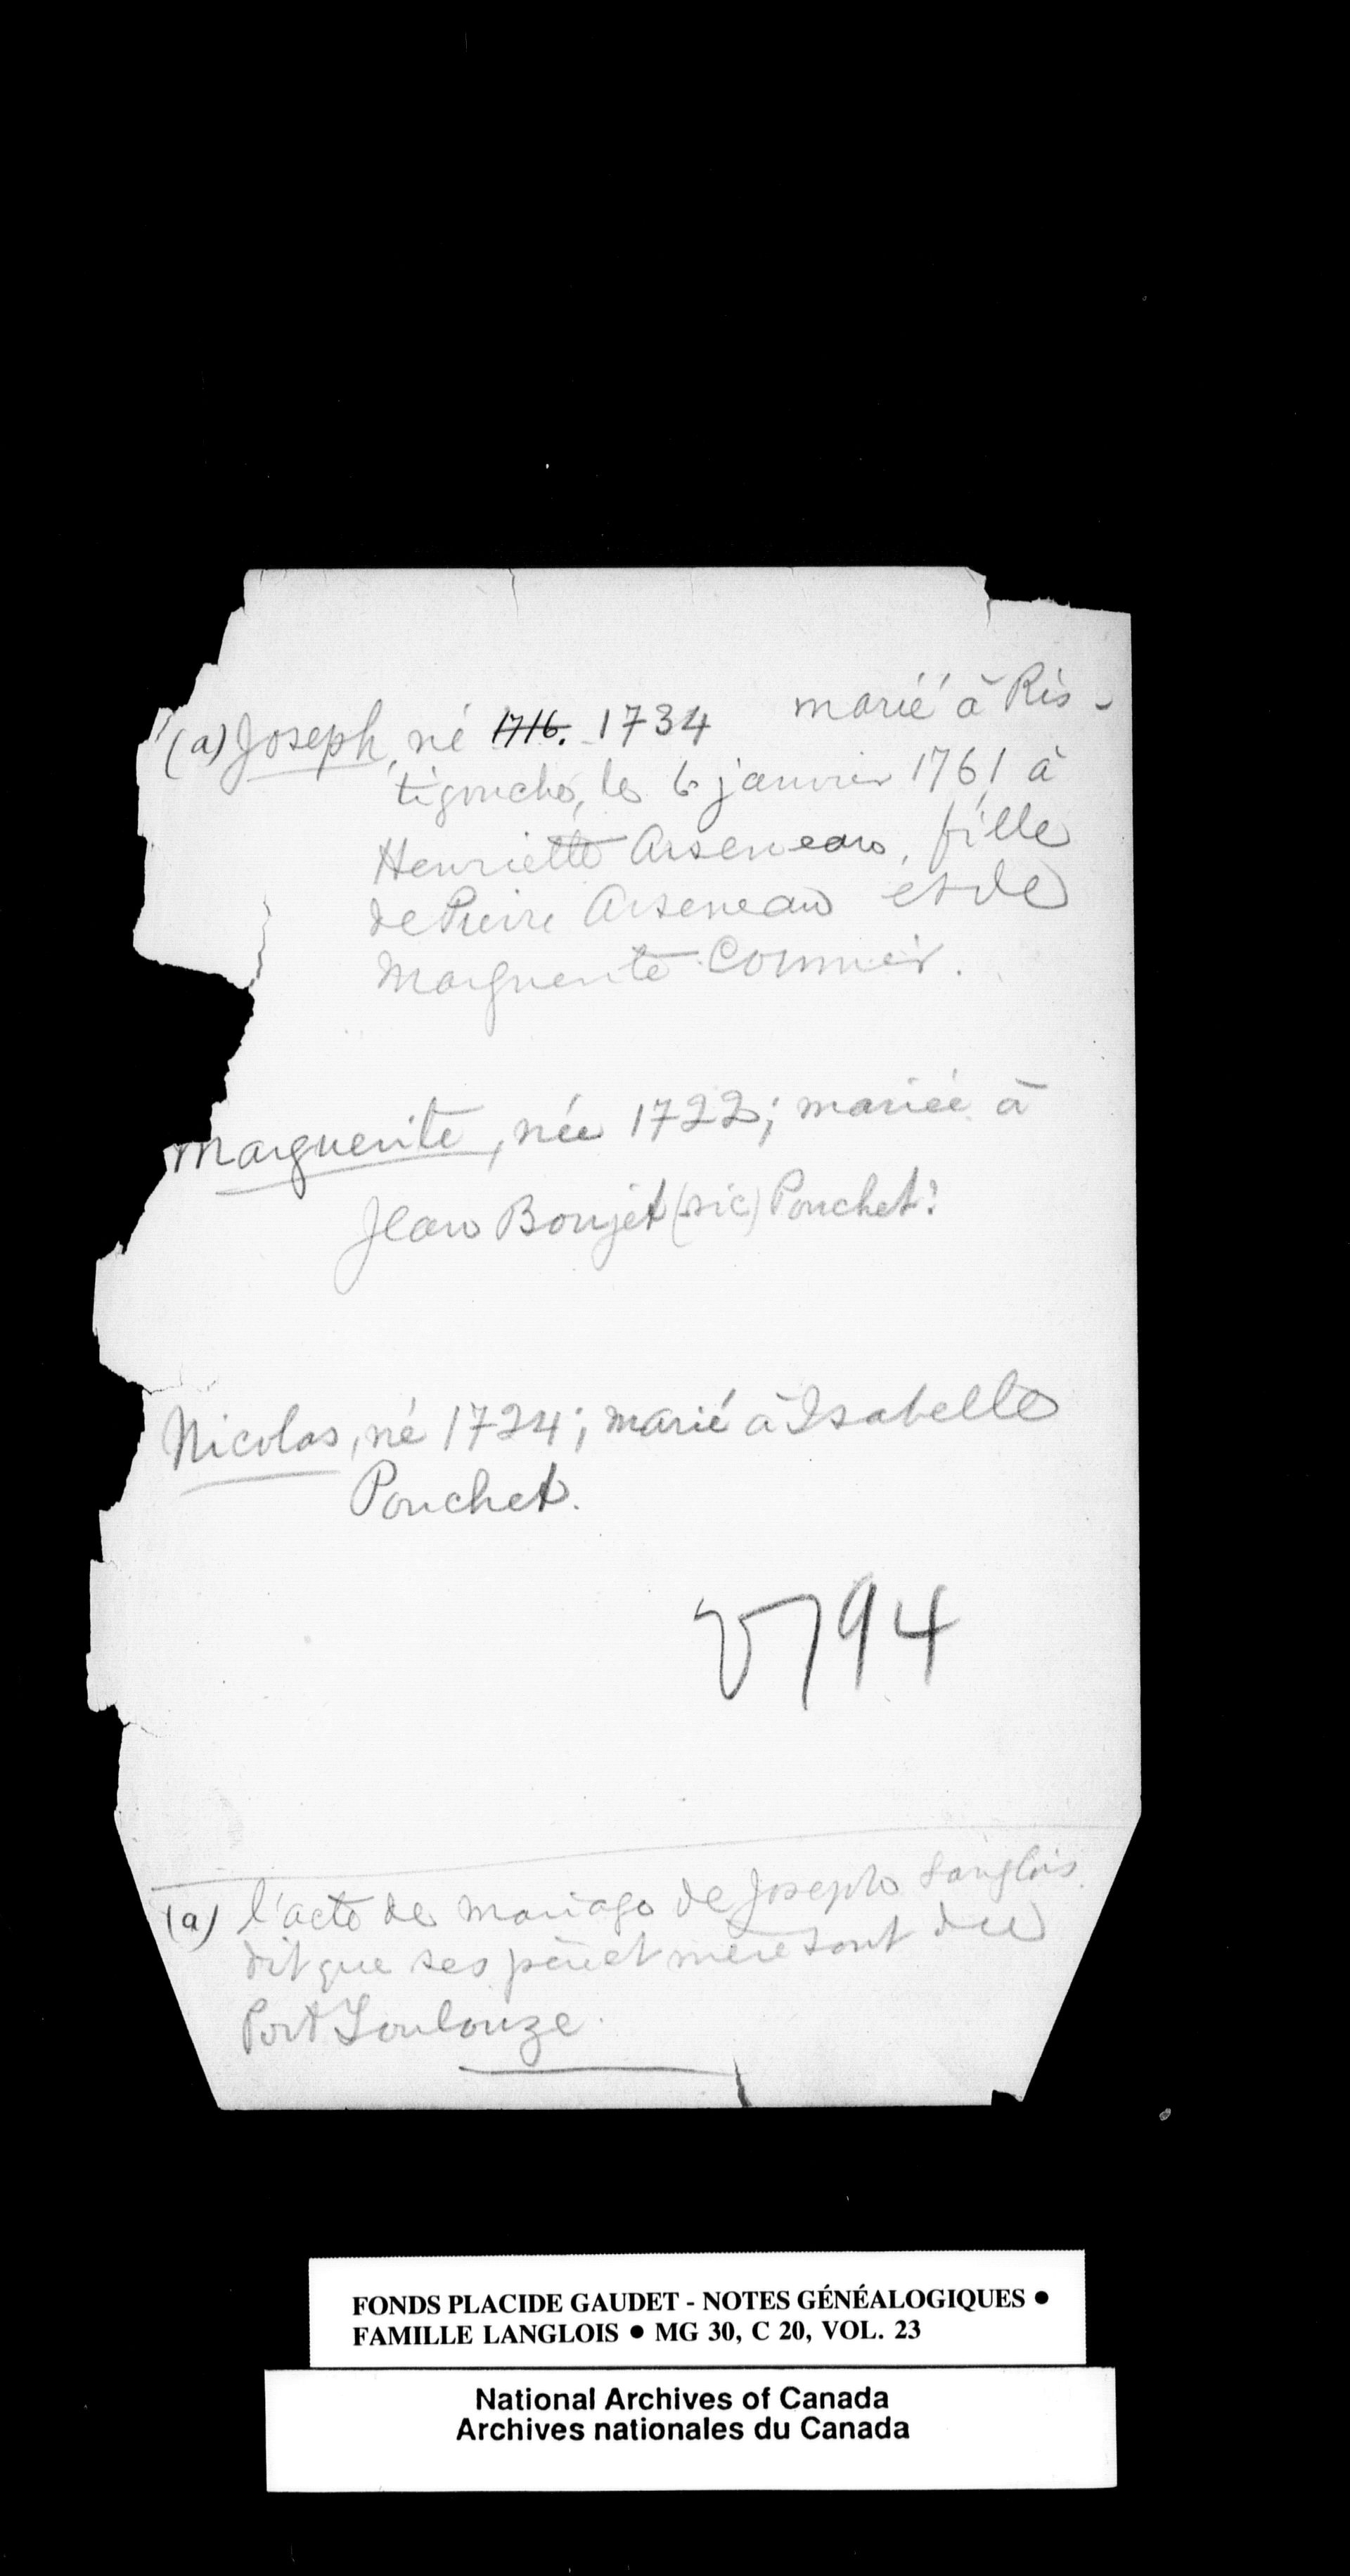 (a) Joseph, né 1716. 1734 marié à Ris-
tigouche, le 6 janvier 1761 à
Henriette Arseneau, fille
de Pierre Arseneau et de
Marguerite Cormier.
Marguerite, née 1722; mariée à
Jean Boujet (sic) Pouchet?
Nicolas, né 1724; marié à Isabelle
Pouchet.
794
(a) l'acte de mariage de Joseph Langlois
dit que ses père et mère sont du
Port Toulouze.
FONDS PLACIDE GAUDET - NOTES GÉNÉALOGIQUES ●
FAMILLE LANGLOIS ● MG 30, C 20, VOL. 23
National Archives of Canada
Archives nationales du Canada